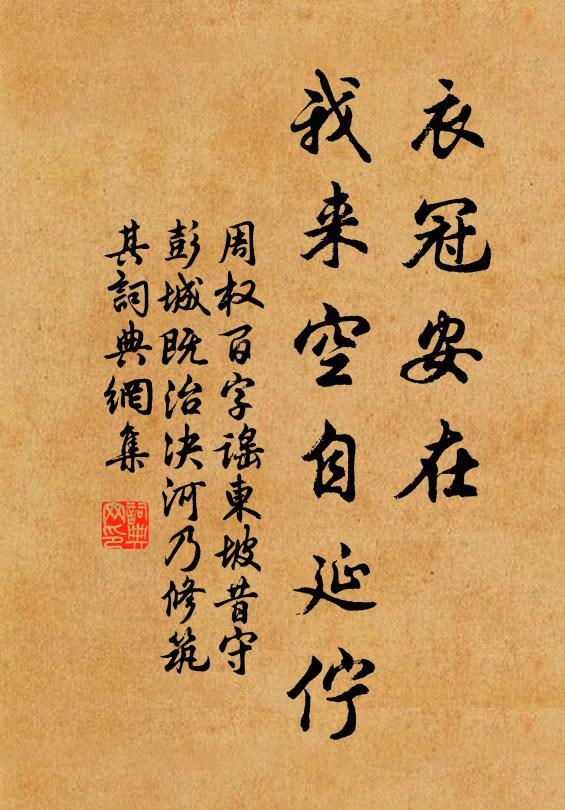 衣冠安在
我来空自延伫
周权百字謡東坡昔守
彭城既治决河乃修筑
其詞典網集
詞典網印